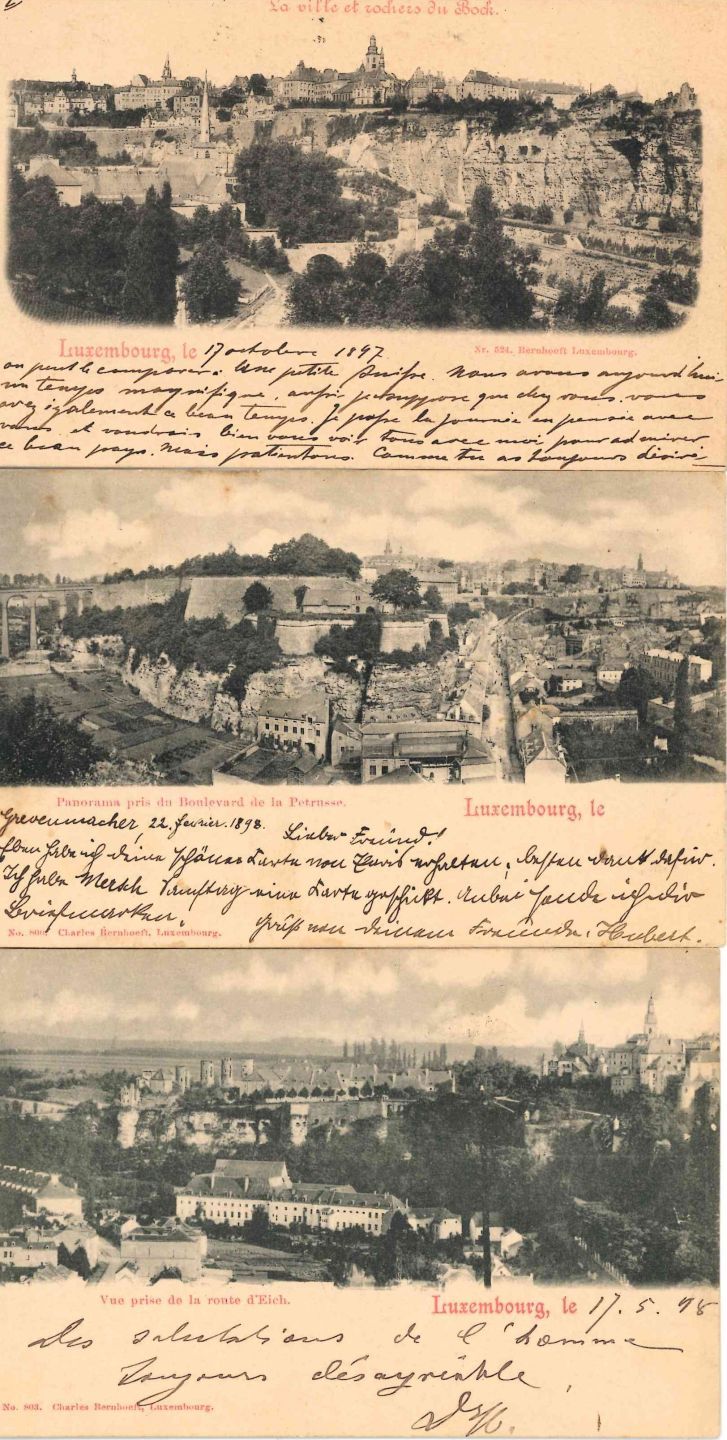 La ville et rochers du Bock.
Luxembourg, le 17 octobre 1897.
Nr. 524. Bernhoeft Luxembourg.
on peut le comparer: Une petite Suisse. Nous avons aujourd'hui
un temps magnifique, aussi je suppose que chez vous, vous
avez également ce beau temps. Je passe la journée en pensée avec
vous, et voudrais bien vous voir tous avec moi pour admirer
ce beau pays. Mais patientons. Comme tu as toujours désiré
Panorama pris du Boulevard de la Petrusse.
Luxembourg, le
Grevenmacher, 22. fevrier. 1898. Lieber Freund!
Eben habe ich deine schöne Karte von Paris erhalten, besten dank dafür.
Ich habe Mersch Samstag eine Karte geschickt. Anbei sende ich dir
Briefmarken.
Gruß von deinem Freunde, Hubert.
No. 800. Charles Bernhoeft, Luxembourg.
Vue prise de la route d'Eich.
Luxembourg, le 17. 5. 98
Des salutations de l'homme
toujours désagréable
No. 803. Charles Bernhoeft, Luxembourg.